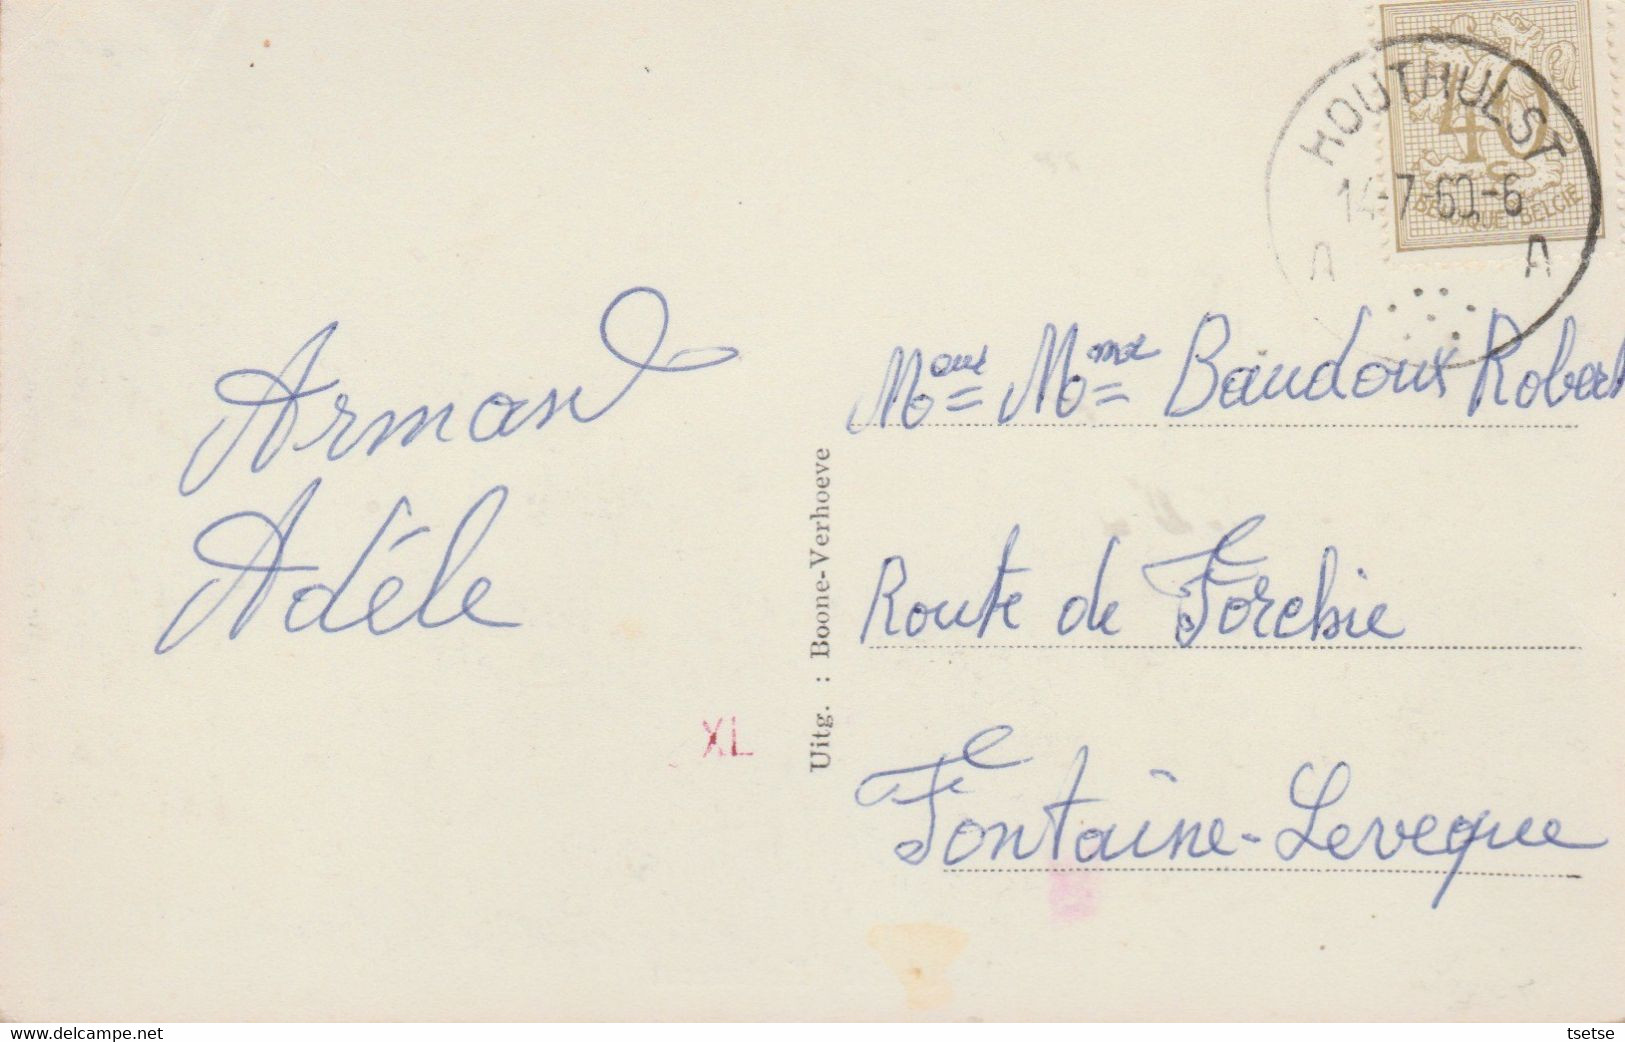 HOUTHULST
14-7-60-6
A A
40c
BELGIQUE-BELGIË
Arman
Adèle
XL
Uitg. : Boone-Verhoeve
Baudoux Robert
Route de Forchie
Fontaine-Leveque
delcampe.net
tsetse